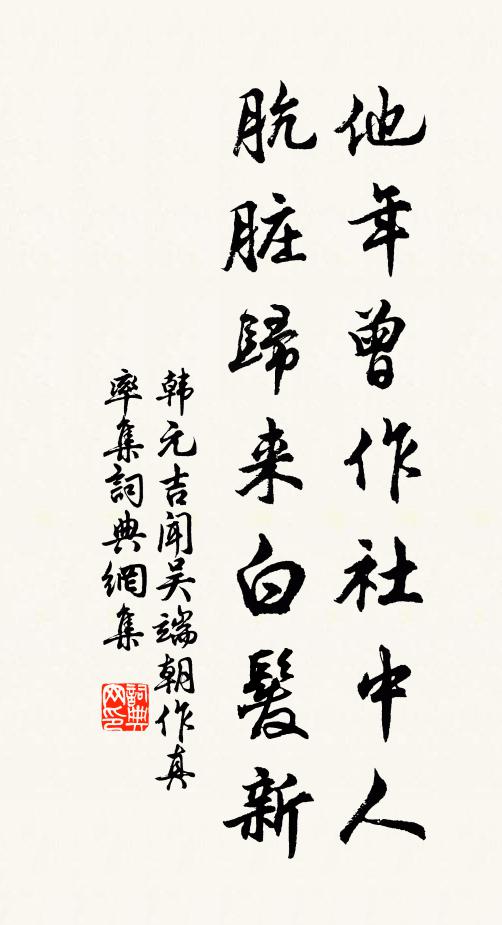 他年曾作社中人
肮脏歸来白髮新
韩元吉闻吴端朝作真
率集詞典網集
詞典
网印